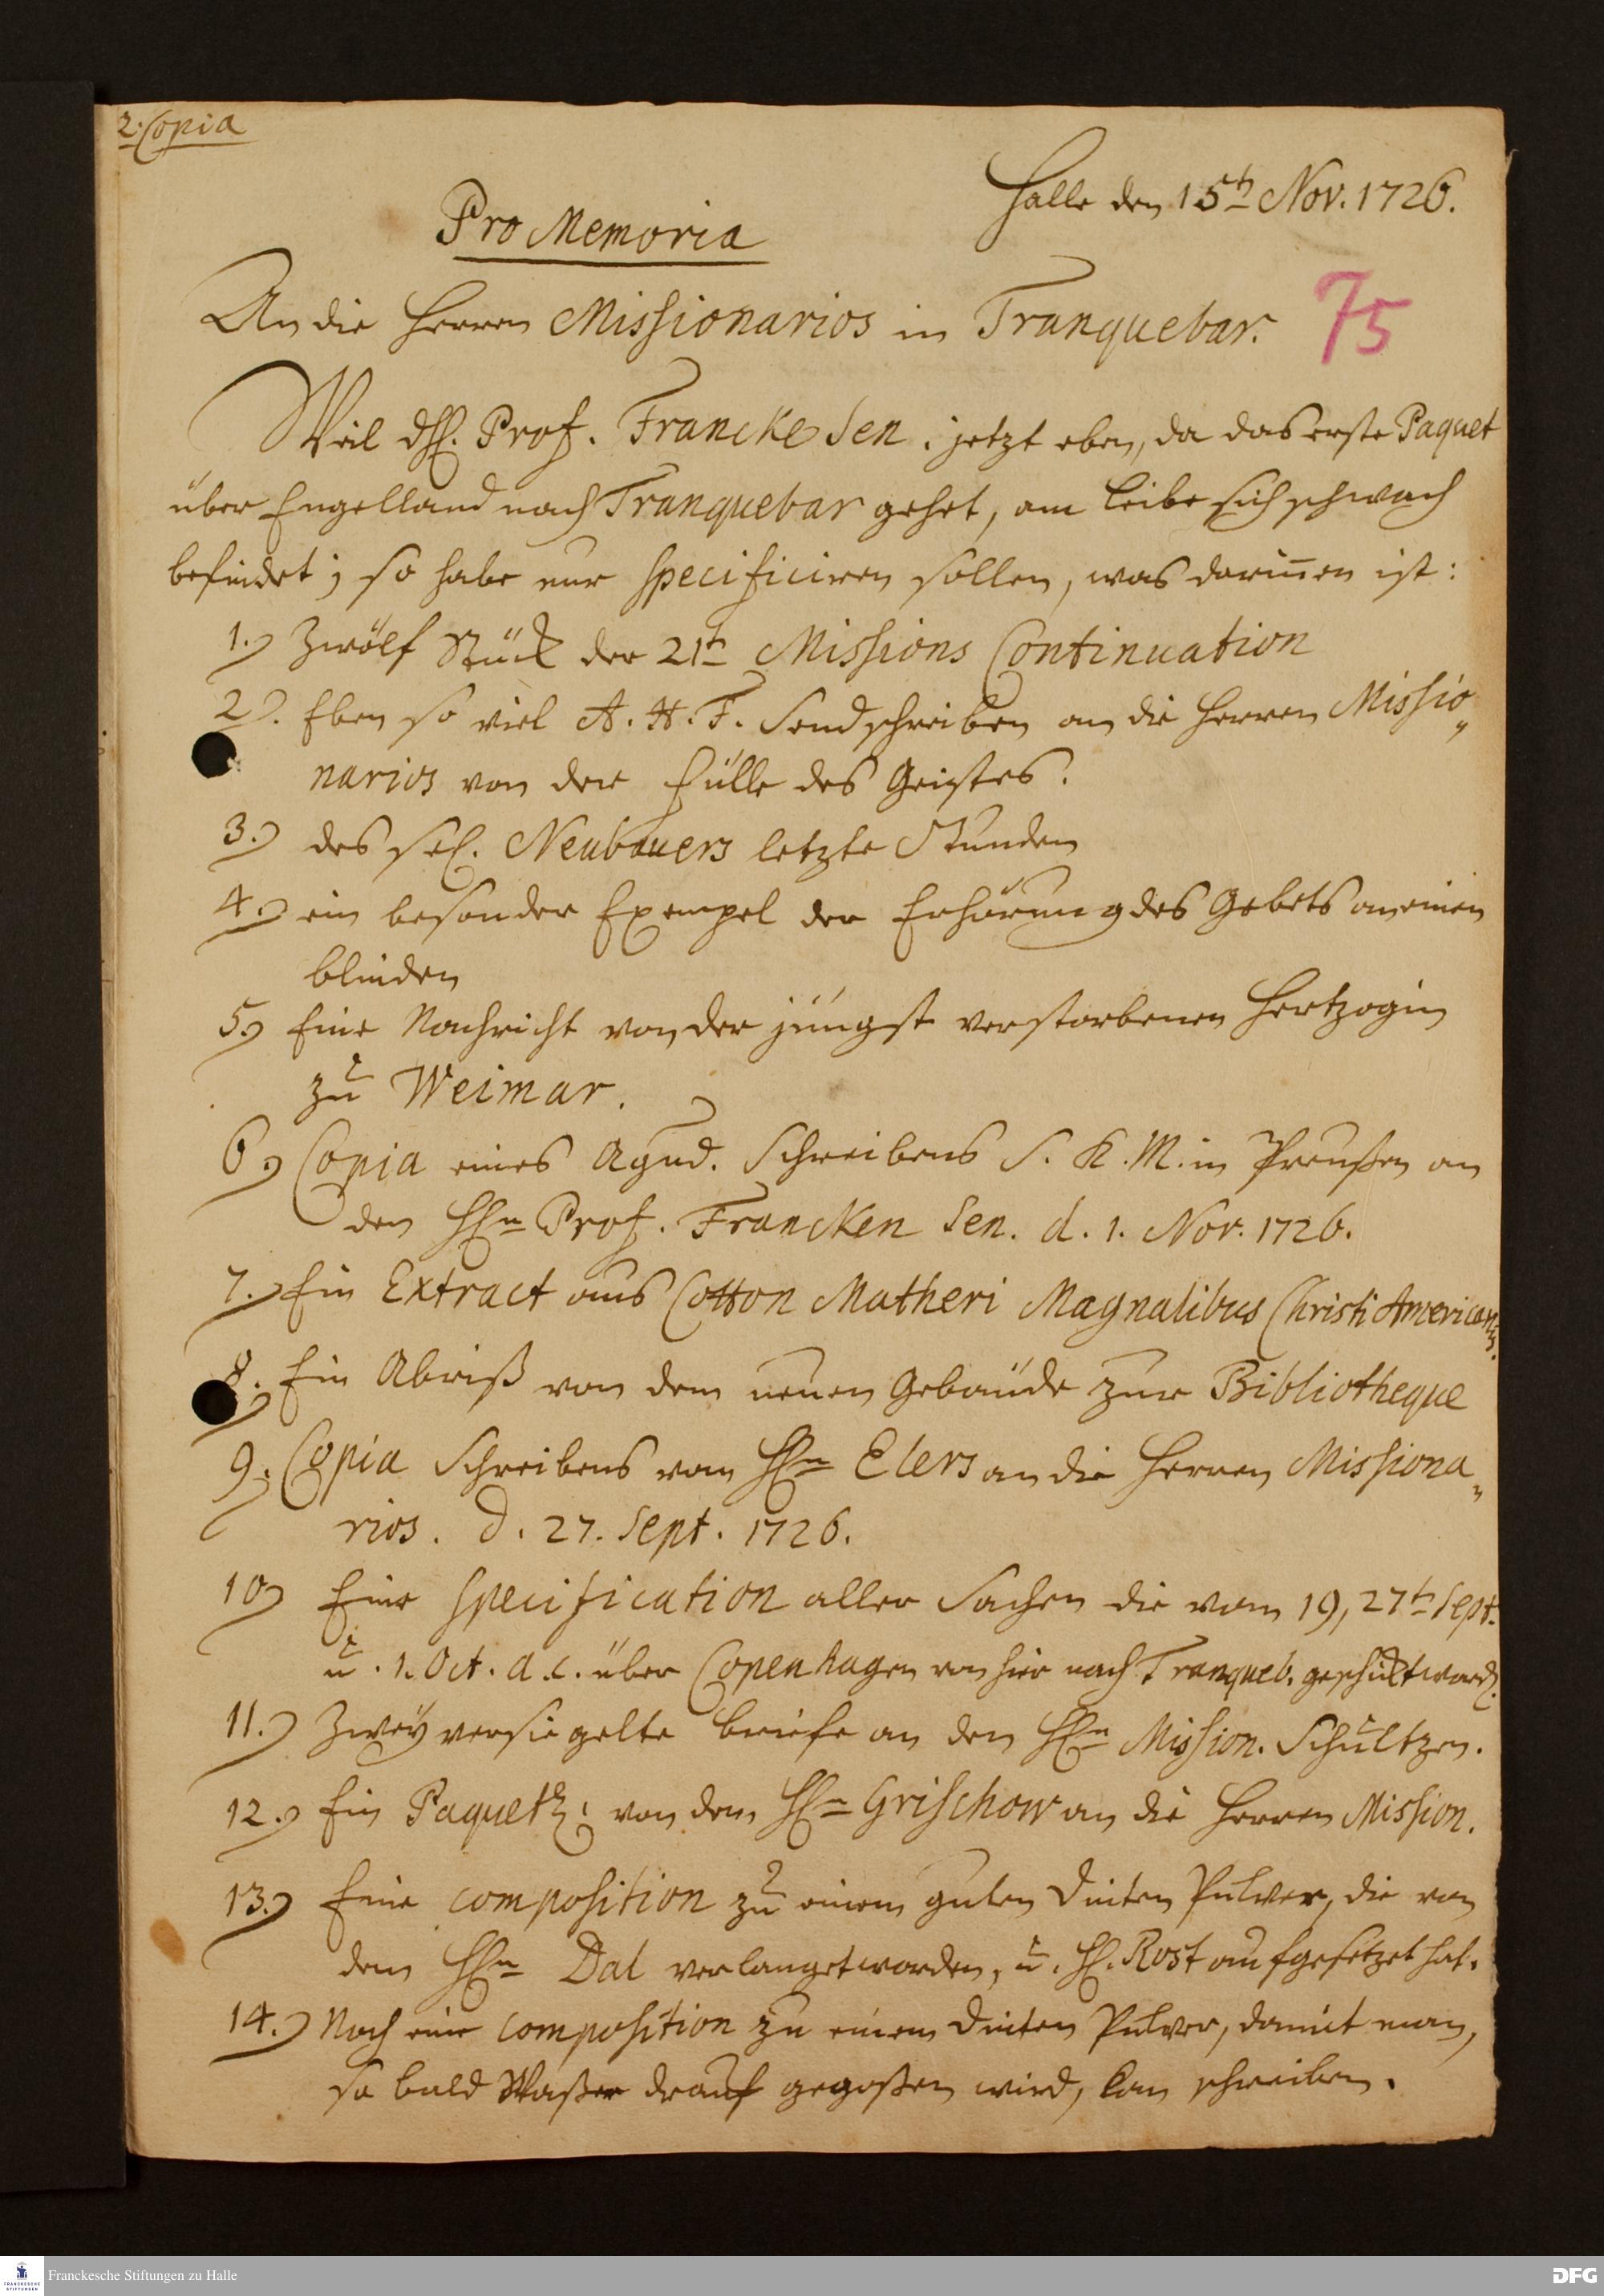 2. Copia
Halle den 15t Nov. 1726.
Pro Memoria
An die Herren Missionarios in Tranquebar.
75
Weil H. Prof. Francke Sen. jetzt eben, da das erste Paquet
über Engelland nach Tranquebar gehet, am Leibe sich schwach
befindet; so habe nur specificiren sollen, was darinnen ist:
1.) Zwölf Stück der 21t Missions Continuation
2). Eben so viel A. H. F. Sendschreiben an die Herren Missio„
narios von der Fülle des Geistes.
3.) des sel. Neubauers letzte Stunden
4.) ein besonder Exempel der Erhörung des Gebets an einen
blinden
5.) Eine Nachricht von der jüngst verstorbenen Hertzogin
zu Weimar.
6.) Copia eines Agnd. Schreibens S. K. M. in Preußen an
den HEn Prof. Francken Sen. d. 1. Nov. 1726.
7.) Ein Extract aus Cotton Matheri Magnalibus Christi Americanis.
8.) Ein Abriß von dem neuen Gebäude zur Bibliotheque
9.) Copia Schreibens vom HEn Elers an die Herren Missiona„
rios. d. 27. Sept. 1726.
10) Eine Specification aller Sachen die vom 19, 27t Sept.
u. 1. Oct. a. c. über Copenhagen von hier nach Tranqueb. geschickt word.
11.) Zwey versiegelte briefe an den HEn Mission. Schultzen.
12.) Ein Paquet von dem HEn Grischow an die Herren Mission.
13.) Eine composition zu einem guten Dinten Pulver, die von
dem HEn Dal verlanget worden, u. H. Rost aufgesetzet hat.
14.) Noch eine composition zu einem Dinten Pulver, damit man,
so bald Waßer drauf gegoßen wird, kan schreiben.
Franckesche Stiftungen zu Halle
FRANCKESCHE
STIFTUNGEN
DFG